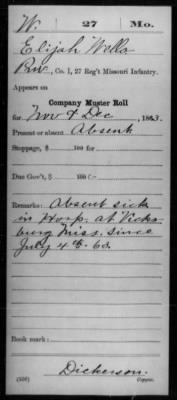 W. 27 Mo.
Elijah Wells
Pvt, Co. I, 27 Reg't Missouri Infantry.
Appears on
Company Muster Roll
for Nov & Dec, 1863.
Present or absent Absent
Stoppage, $ 100 for
Due Gov't, $ 100
Remarks: Absent sick
in Hosp. at Vicks-
burg Miss. since
July 4th 63.
Book mark:
Dickerson.
Copyist.